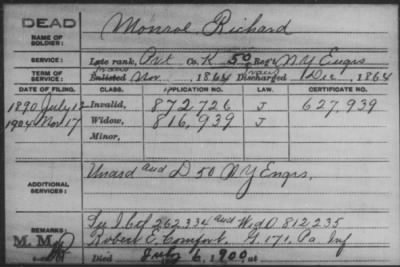 DEAD
NAME OF SOLDIER: Monroe Richard
SERVICE: Late rank, Pvt Co. K 50 Reg't N Y Engrs
TERM OF SERVICE: Enlisted Nov 1864 Discharged Dec, 1864
DATE OF FILING. CLASS. APPLICATION NO. LAW. CERTIFICATE NO.
1890 July 12 Invalid, 872,726 J 627,939
1904 Nov 17 Widow, 816,939 J
Minor,
ADDITIONAL SERVICES: Unasd and D 50 N Y Engrs.
REMARKS: See I 6 of 262334 and Wid O 812,235
Robert C. Comfort. G. 171. Pa Inf
M. M.
Died July 6, 1900, at